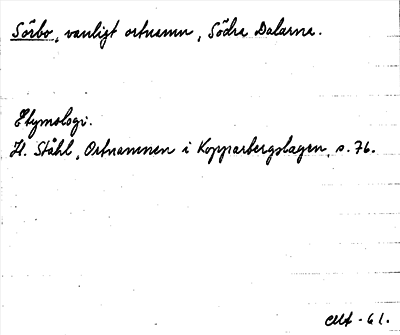 Sörbo, vanligt ortnamn, Södra Dalarna.
Etymologi.
H. Ståhl, Ortnamnen i Kopparbergslagen, s. 76.
-61.